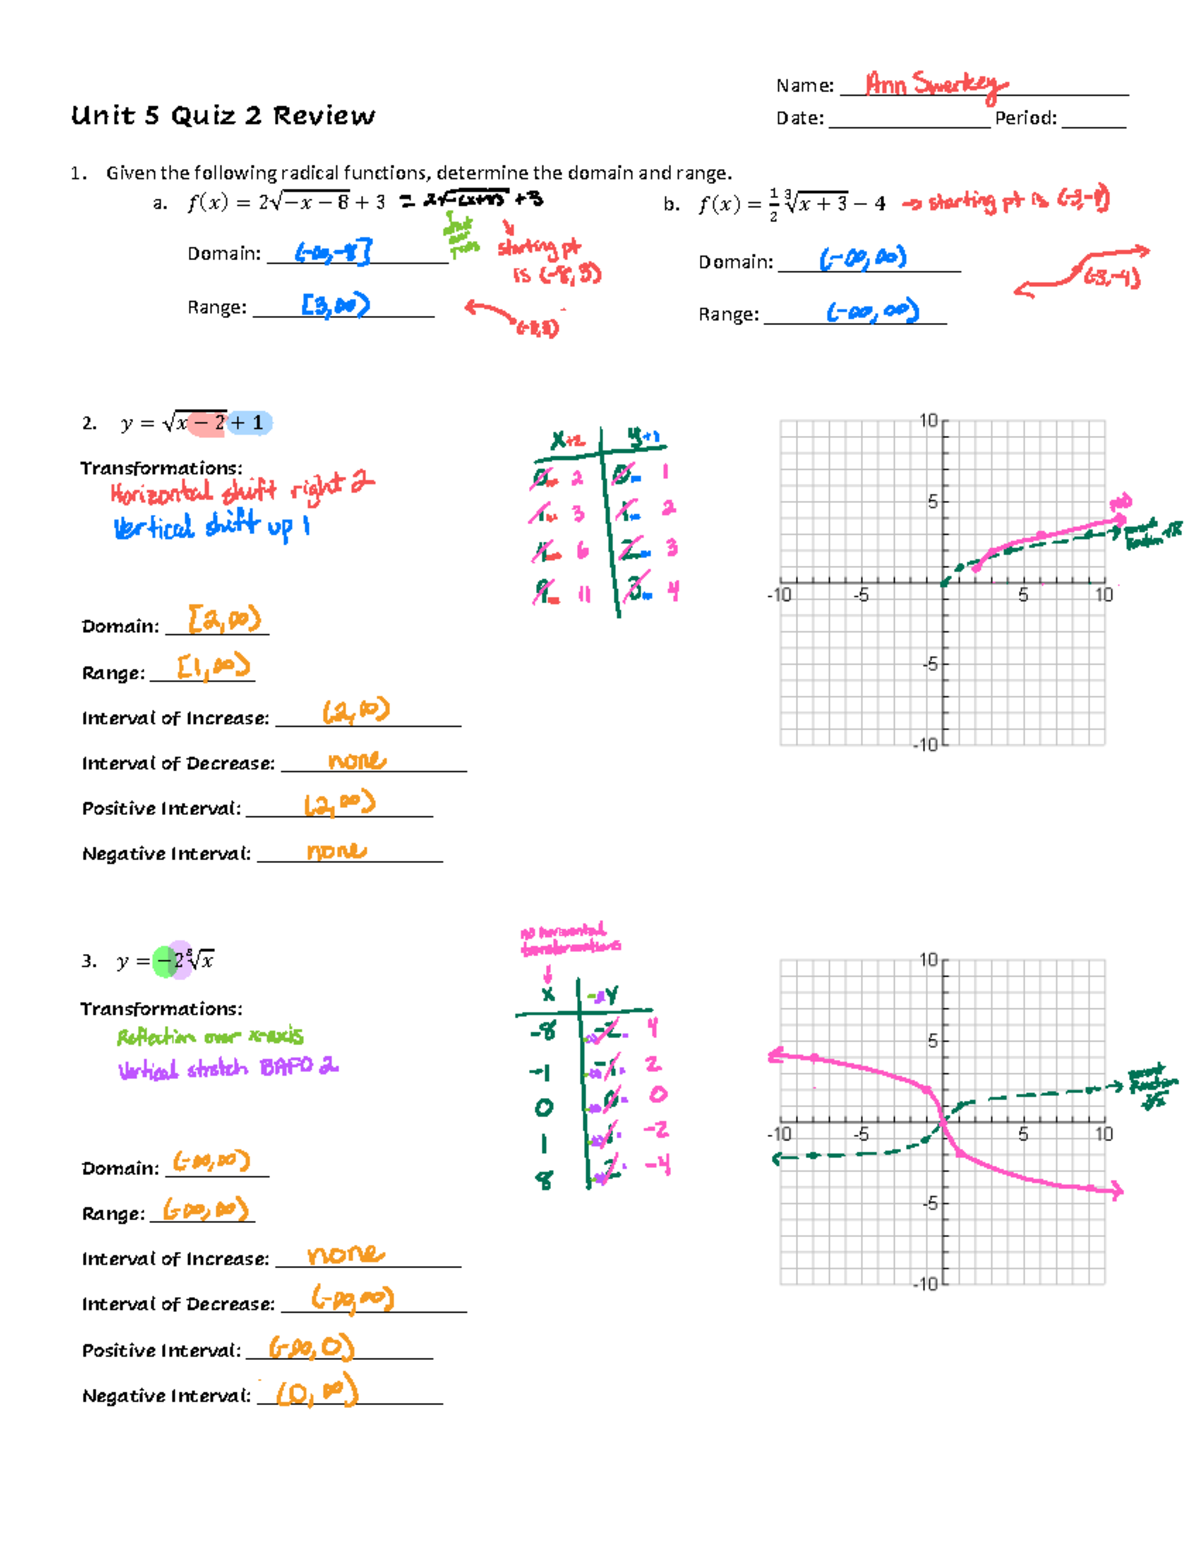 Name: Ann Swerkey
Unit 5 Quiz 2 Review
Date: Period:
1. Given the following radical functions, determine the domain and range.
a. f(x) = 2√(−x − 8) + 3 = 2√(−(x+8)) + 3
starting pt
is (-8, 3)
Domain: (-∞, -8]
Range: [3, ∞)
(-8,3)
b. f(x) = ½ ∛(x + 3) − 4 → starting pt is (-3,-4)
Domain: (-∞, ∞)
(-3,-4)
Range: (-∞, ∞)
2. y = √(x − 2) + 1
Transformations:
Horizontal shift right 2
Vertical shift up 1
Domain: [2, ∞)
Range: [1, ∞)
Interval of Increase: (2, ∞)
Interval of Decrease: none
Positive Interval: (2, ∞)
Negative Interval: none
x+2 y+1
0 2 0 1
1 3 1 2
4 6 2 3
9 11 3 4
10
5
-10 -5 5 10
-5
-10
parent
function √x
3. y = −2∛x
Transformations:
Reflection over x-axis
Vertical stretch BAFO 2
Domain: (-∞, ∞)
Range: (-∞, ∞)
Interval of Increase: none
Interval of Decrease: (-∞, ∞)
Positive Interval: (-∞, 0)
Negative Interval: (0, ∞)
no horizontal
transformations
x -2y
-8 -2 4
-1 -1 2
0 0 0
1 1 -2
8 2 -4
10
5
-10 -5 5 10
-5
-10
parent
function
∛x